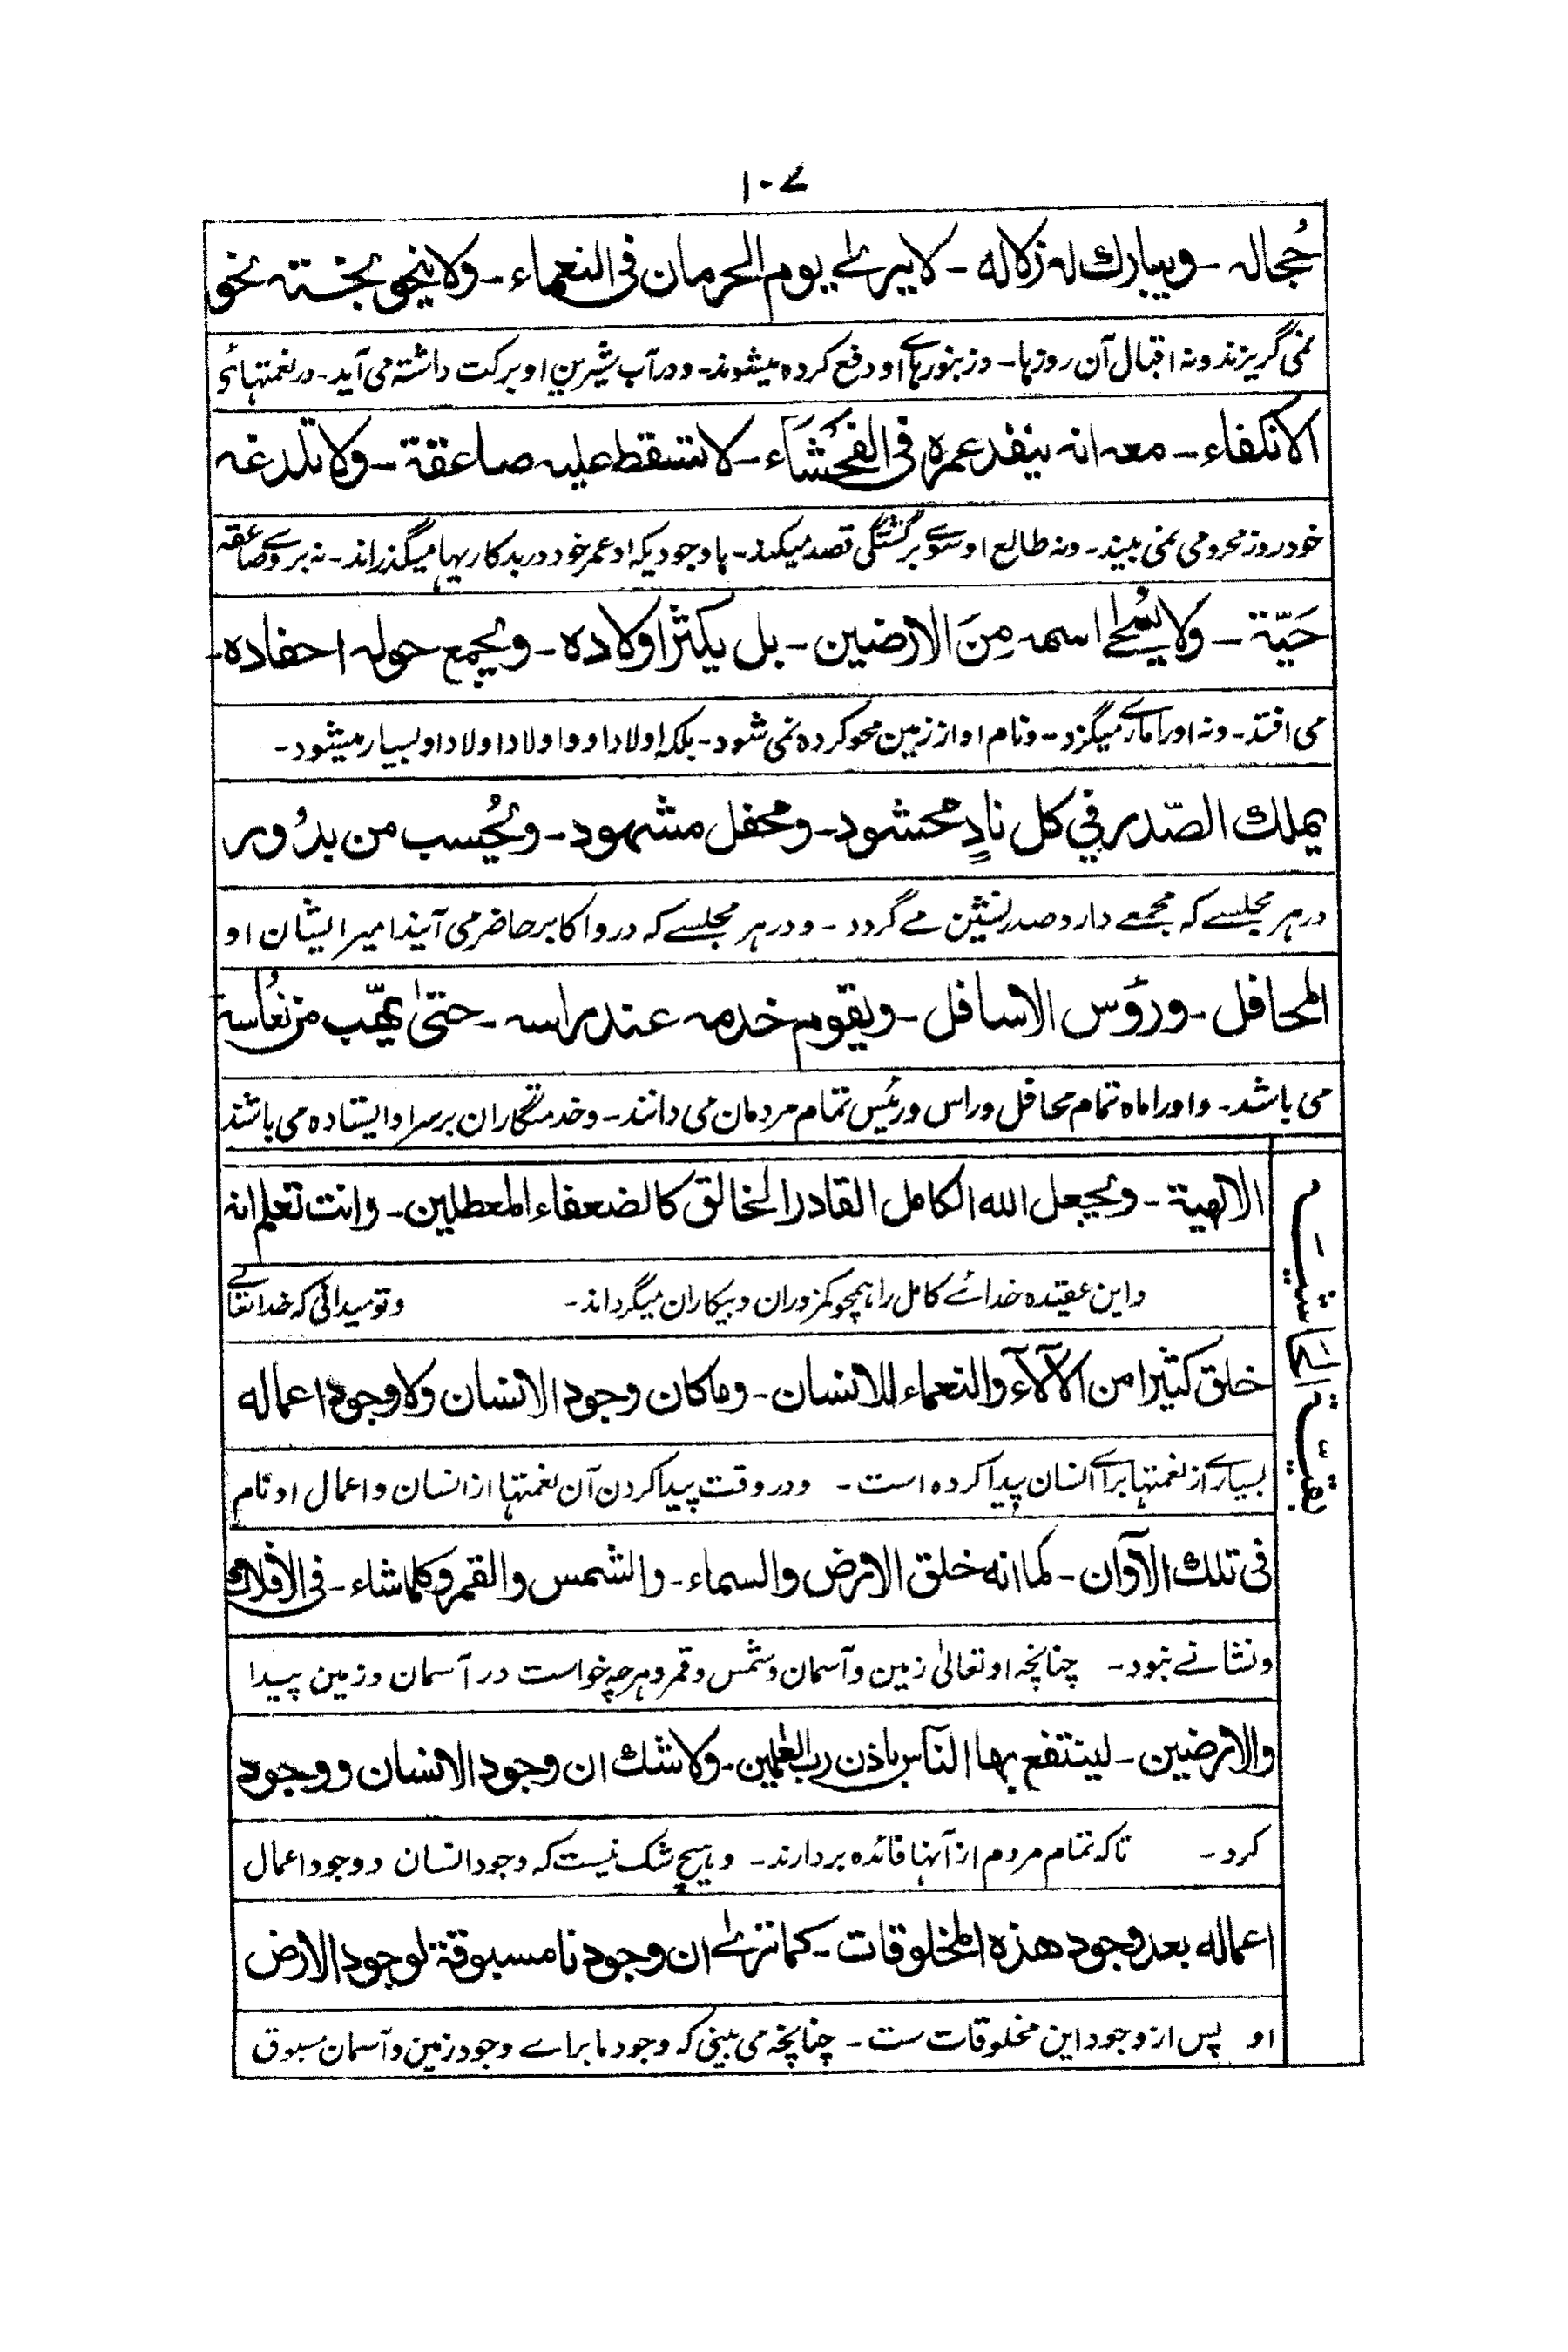 ۱۰۷
حُجاله ـ ويبارك له زلاله ـ لا يرىٰ يوم الحرمان فى النعماء ـ ولا ينحو بخته نحو
نمی گریزند و نہ اقبال آن روزہا ـ و زنبورہائے او دفع کردہ میشوند ـ و در آب شیرین او برکت داشتہ می آید ـ در نعمتہائے
الانكفاء ـ معه انه ينفد عمره فى الفحشاء ـ لا تسقط عليه صاعقة ـ ولا تلدغه
خود روز محرومی نمی بیند ـ و نہ طالع او سوئے برگشتگی قصد میکند ـ باوجودیکہ او عمر خود در بدکاریہا میگذراند ـ نہ بروے صاعقہ
حَيّة ـ ولا يُمحىٰ اسمه مِنَ الارضين ـ بل يكثر اولاده ـ ويجمع حوله احفاده ـ
می افتد ـ و نہ او را مارے میگزد ـ و نام او از زمین محو کردہ نمی شود ـ بلکہ اولاد او و اولاد اولاد او بسیار میشود ـ
يملك الصّدر في كل نادٍ محشود ـ ومحفل مشهود ـ ويُحسب من بدُور
در ہر مجلسے کہ مجمعے دارد صدر نشین مے گردد ـ و در ہر مجلسے کہ درو اکابر حاضر می آیند امیر ایشان او
المحافل ـ ورؤس الاسافل ـ ويقوم خدمه عند راسه ـ حتىٰ يهّب من نعُاسه
می باشد ـ و او را ماہ تمام محافل و راس و رئیس تمام مردمان می دانند ـ و خدمتگاران بر سر او ایستادہ می باشند
بقيّة الحَاشيـہ
الالهية ـ ويجعل الله الكامل القادر الخالق كالضعفاء المعطلين ـ وانت تعلم انه
و این عقیدہ خدائے کامل را ہمچو کمزوران و بیکاران میگرداند ـ و تو میدانی کہ خدا تعالےٰ
خلق كثيرا من الآلاء والنعماء للانسان ـ وما كان وجود الانسان ولا وجود اعماله
بسیارے از نعمتہا برائے انسان پیدا کردہ است ـ و در وقت پیدا کردن آن نعمتہا از انسان و اعمال او نام
فى تلك الآوان ـ كما انه خلق الارض والسماء ـ والشمس والقمر وكلما شاء ـ فى الافلاك
و نشانے نبود ـ چنانچہ او تعالیٰ زمین و آسمان و شمس و قمر و ہرچہ خواست در آسمان و زمین پیدا
والارضين ـ لينتفع بها الناس باذن رب العٰلمين ـ ولا شك ان وجود الانسان ووجود
کرد ـ تاکہ تمام مردم از آنہا فائدہ بردارند ـ و ہیچ شک نیست کہ وجود انسان و وجود اعمال
اعماله بعد وجود هذه المخلوقات ـ كما ترىٰ ان وجودنا مسبوقة لوجود الارض
او پس از وجود این مخلوقات ست ـ چنانچہ می بینی کہ وجود ما برائے وجود زمین و آسمان مسبوق